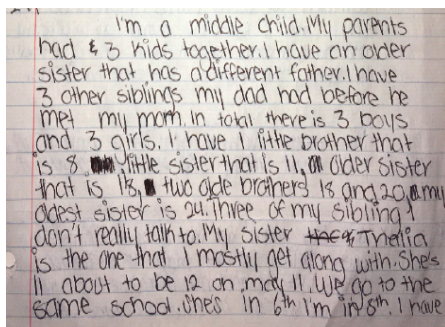 I'm a middle child. My parents
had & 3 kids together. I have an older
sister that has a different father. I have
3 other siblings my dad had before he
met my mom. In total there is 3 boys
and 3 girls. I have 1 little brother that
is 8. little sister that is 11, older sister
that is 18, two olde brothers 18 and 20, my
oldest sister is 24. Three of my sibling I
don't really talk to. My sister Thalia
is the one that I mostly get along with. She's
11 about to be 12 on may 11. We go to the
same school. she's in 6th I'm in 8th. I have